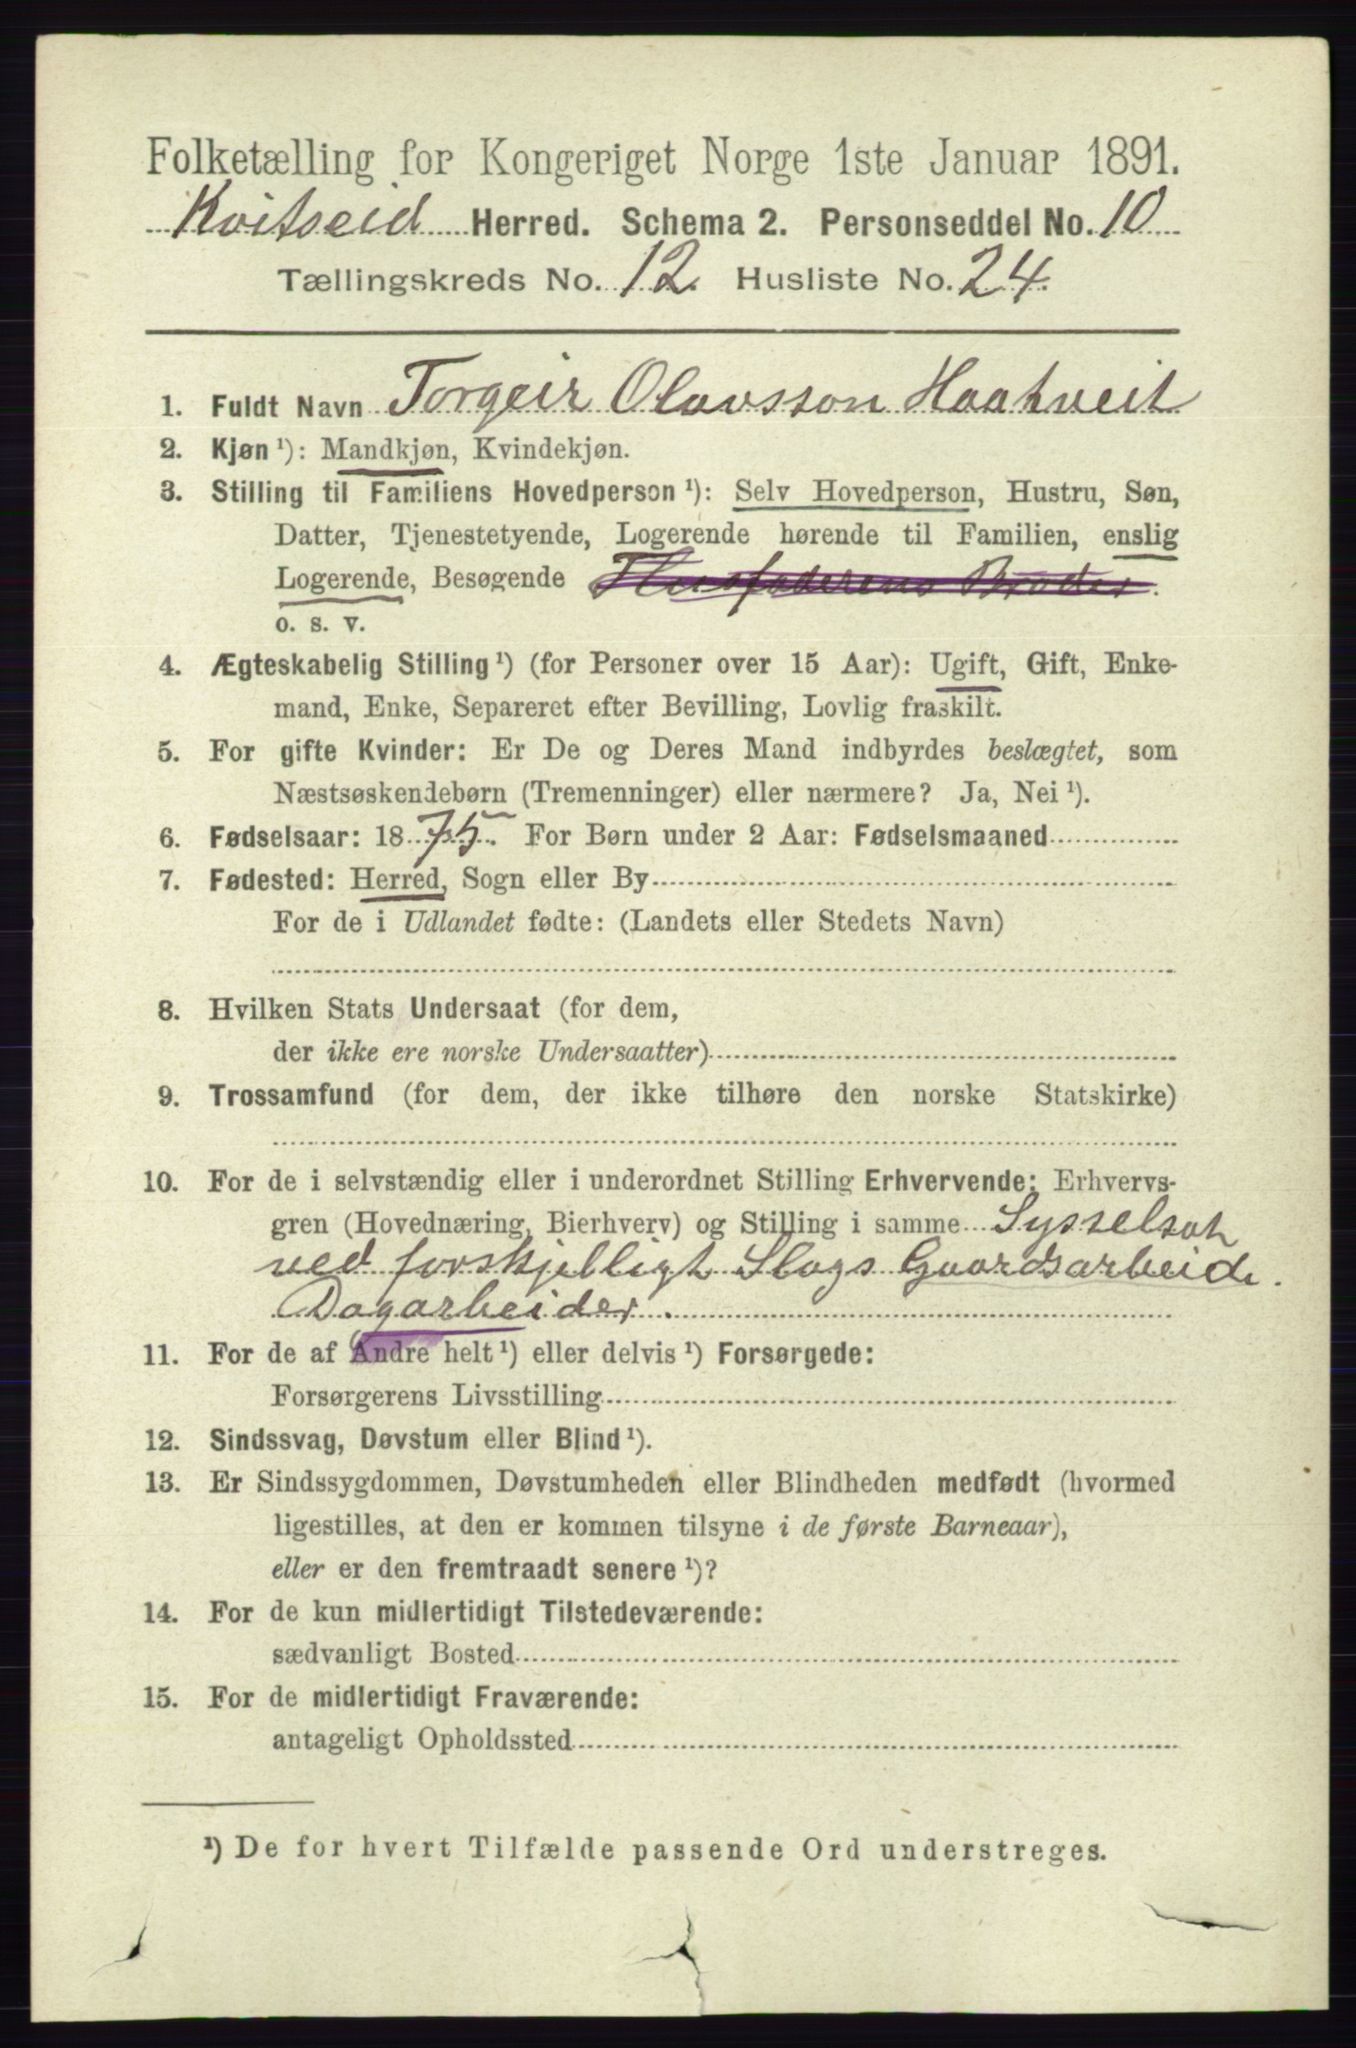 Folketælling for Kongeriget Norge 1ste Januar 1891.
Kvitseid Herred. Schema 2. Personseddel No. 10
Tællingskreds No. 12. Husliste No. 24.
1. Fuldt Navn Torgeir Olavsson Haatveit
2. Kjøn ¹): Mandkjøn, Kvindekjøn.
3. Stilling til Familiens Hovedperson ¹): Selv Hovedperson, Hustru, Søn,
Datter, Tjenestetyende, Logerende hørende til Familien, enslig
Logerende, Besøgende Husfaderens Broder.
o. s. v.
4. Ægteskabelig Stilling ¹) (for Personer over 15 Aar): Ugift, Gift, Enke-
mand, Enke, Separeret efter Bevilling, Lovlig fraskilt.
5. For gifte Kvinder: Er De og Deres Mand indbyrdes beslægtet, som
Næstsøskendebørn (Tremenninger) eller nærmere? Ja, Nei ¹).
6. Fødselsaar: 1875. For Børn under 2 Aar: Fødselsmaaned
7. Fødested: Herred, Sogn eller By
For de i Udlandet fødte: (Landets eller Stedets Navn)
8. Hvilken Stats Undersaat (for dem,
der ikke ere norske Undersaatter)
9. Trossamfund (for dem, der ikke tilhøre den norske Statskirke)
10. For de i selvstændig eller i underordnet Stilling Erhvervende: Erhvervs-
gren (Hovednæring, Bierhverv) og Stilling i samme Sysselsat
ved forskjelligt Slags Gaardsarbeide.
Dagarbeider.
11. For de af Andre helt ¹) eller delvis ¹) Forsørgede:
Forsørgerens Livsstilling
12. Sindssvag, Døvstum eller Blind ¹).
13. Er Sindssygdommen, Døvstumheden eller Blindheden medfødt (hvormed
ligestilles, at den er kommen tilsyne i de første Barneaar),
eller er den fremtraadt senere ¹)?
14. For de kun midlertidigt Tilstedeværende:
sædvanligt Bosted
15. For de midlertidigt Fraværende:
antageligt Opholdssted
¹) De for hvert Tilfælde passende Ord understreges.